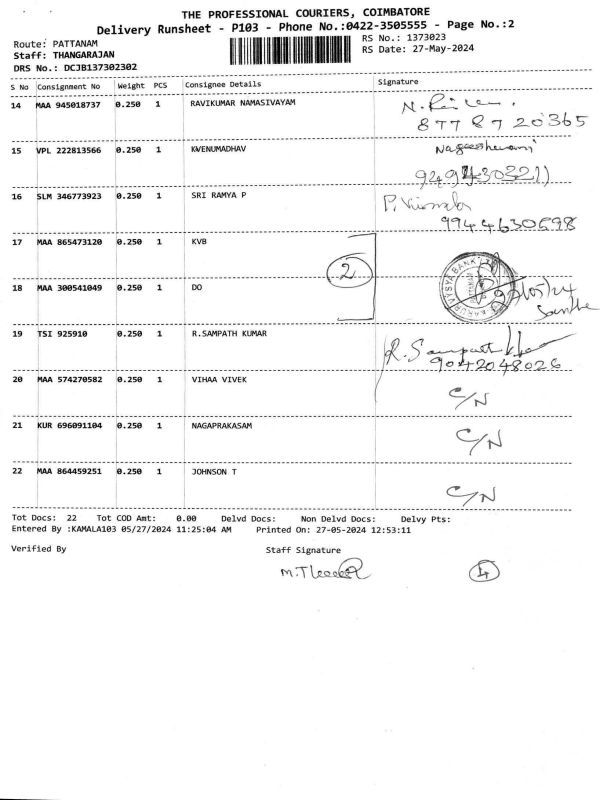 THE PROFESSIONAL COURIERS, COIMBATORE
Delivery Runsheet - P103 - Phone No.:0422-3505555 - Page No.:2
Route: PATTANAM
RS No.: 1373023
Staff: THANGARAJAN
RS Date: 27-May-2024
DRS No.: DCJB137302302
S No Consignment No Weight PCS Consignee Details Signature
14 MAA 945018737 0.250 1 RAVIKUMAR NAMASIVAYAM
8778720365
15 VPL 222813566 0.250 1 KVENUMADHAV
16 SLM 346773923 0.250 1 SRI RAMYA P
9944630698
17 MAA 865473120 0.250 1 KVB
2
18 MAA 300541049 0.250 1 DO
19 TSI 925910 0.250 1 R.SAMPATH KUMAR
R. Sampath
9042048026
20 MAA 574270582 0.250 1 VIHAA VIVEK
C/N
21 KUR 696091104 0.250 1 NAGAPRAKASAM
C/N
22 MAA 864459251 0.250 1 JOHNSON T
C/N
Tot Docs: 22 Tot COD Amt: 0.00 Delvd Docs: Non Delvd Docs: Delvy Pts:
Entered By :KAMALA103 05/27/2024 11:25:04 AM Printed On: 27-05-2024 12:53:11
Verified By Staff Signature